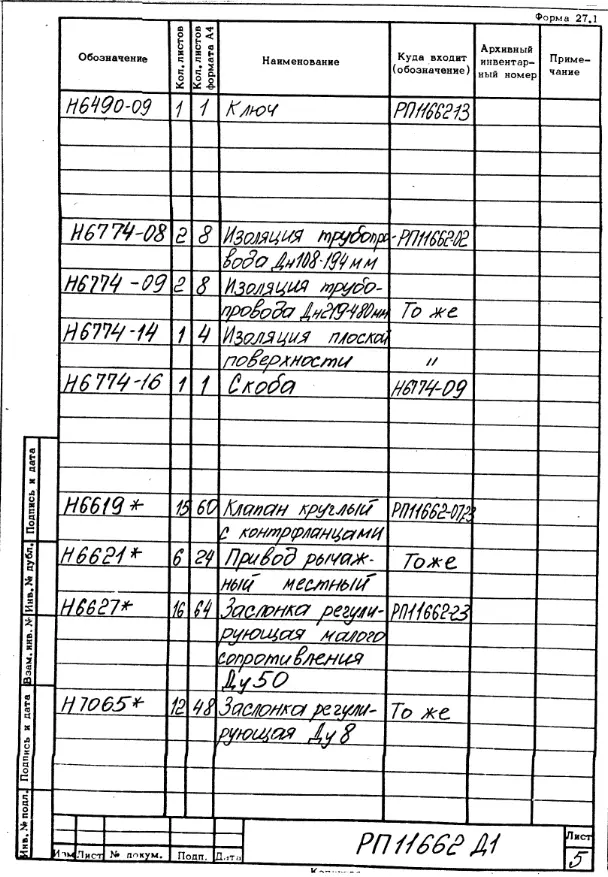 Форма 27.1
Обозначение Кол. листов Кол. листов формата А4 Наименование Куда входит (обозначение) Архивный инвентарный номер Примечание
Н6490-09 1 1 Ключ РП11662-13
Н6774-08 2 8 Изоляция трубопро- РП11662-02
вода Дн108-194 мм
Н6774-09 2 8 Изоляция трубо-
провода Дн219-480мм То же
Н6774-14 1 4 Изоляция плоской
поверхности "
Н6774-16 1 1 Скоба Н6774-09
Н6619* 15 60 Клапан круглый РП11662-07,23
с контрфланцами
Н6621* 6 24 Привод рычаж- Тоже
ный местный
Н6627* 16 64 Заслонка регули- РП11662-23
рующая малого
сопротивления
Ду50
Н7065* 12 48 Заслонка регули- То же
рующая Ду8
Инв. № подл. Подпись и дата Взам. инв. № Инв. № дубл. Подпись и дата
РП11662 Д1
Лист
5
Изм Лист № докум. Подп. Дата